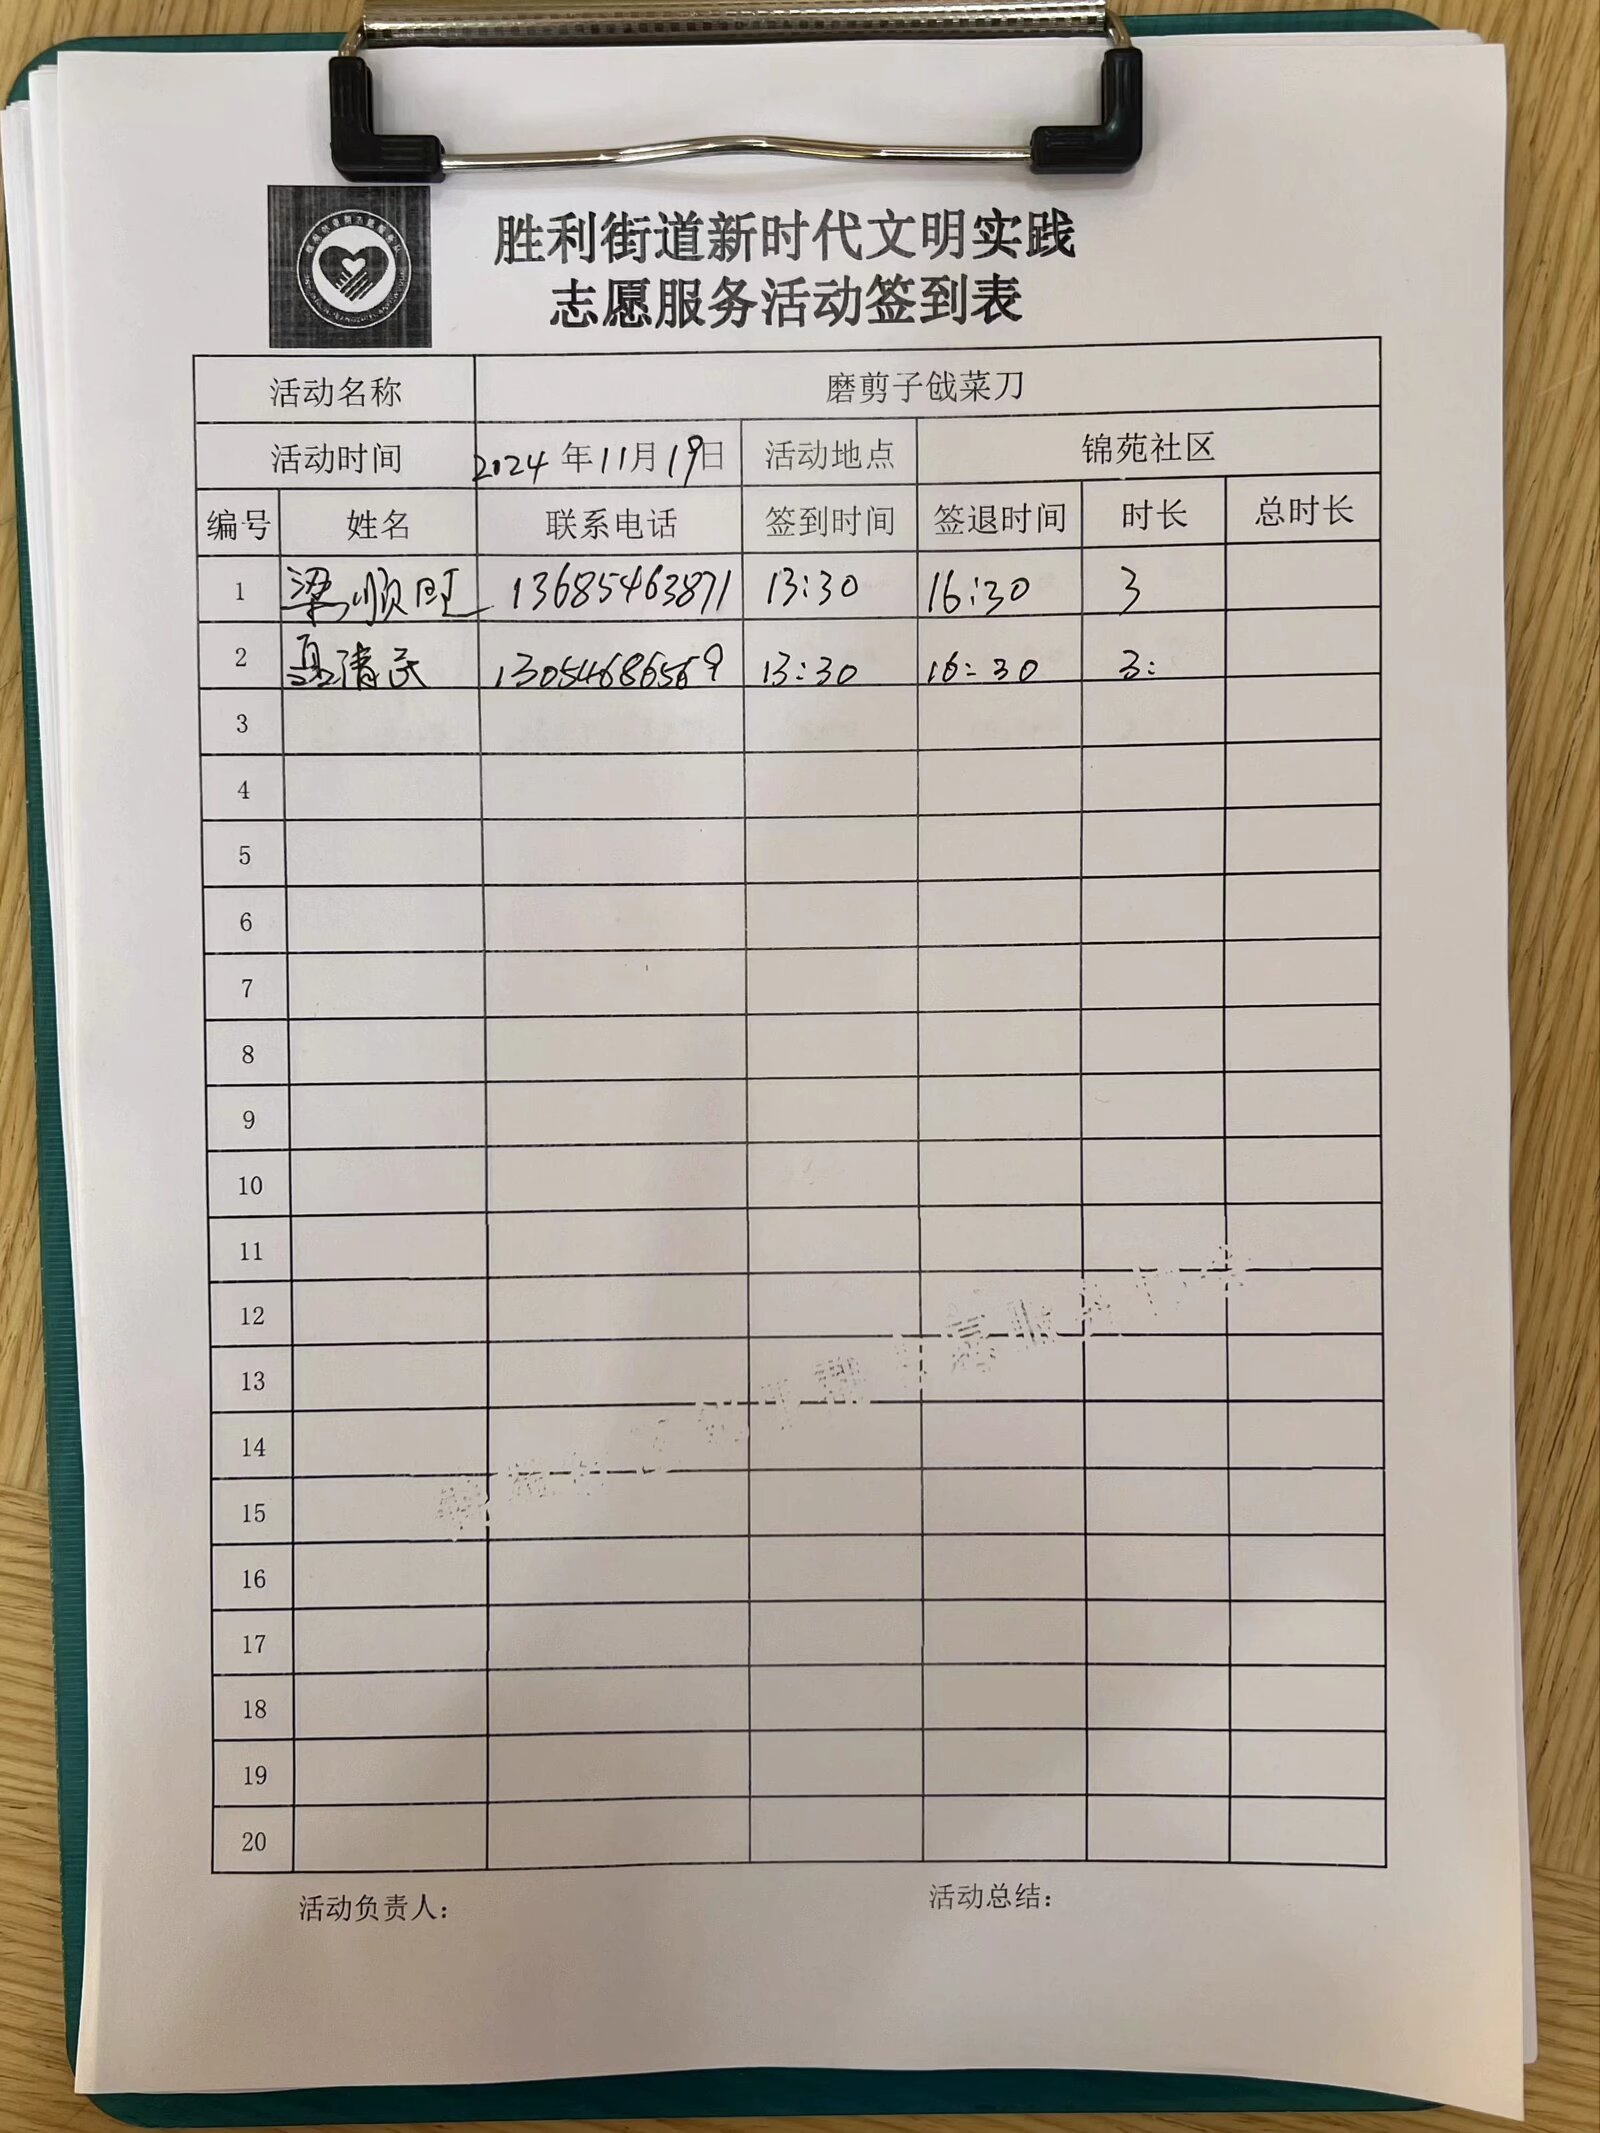 胜利街道新时代文明实践
志愿服务活动签到表
活动名称 磨剪子戗菜刀
活动时间 2024年11月19日 活动地点 锦苑社区
编号 姓名 联系电话 签到时间 签退时间 时长 总时长
1 梁顺旺 13685463871 13:30 16:30 3
2 聂清民 13054686569 13:30 16:30 3:
3
4
5
6
7
8
9
10
11
12
13
14
15
16
17
18
19
20
活动负责人： 活动总结：